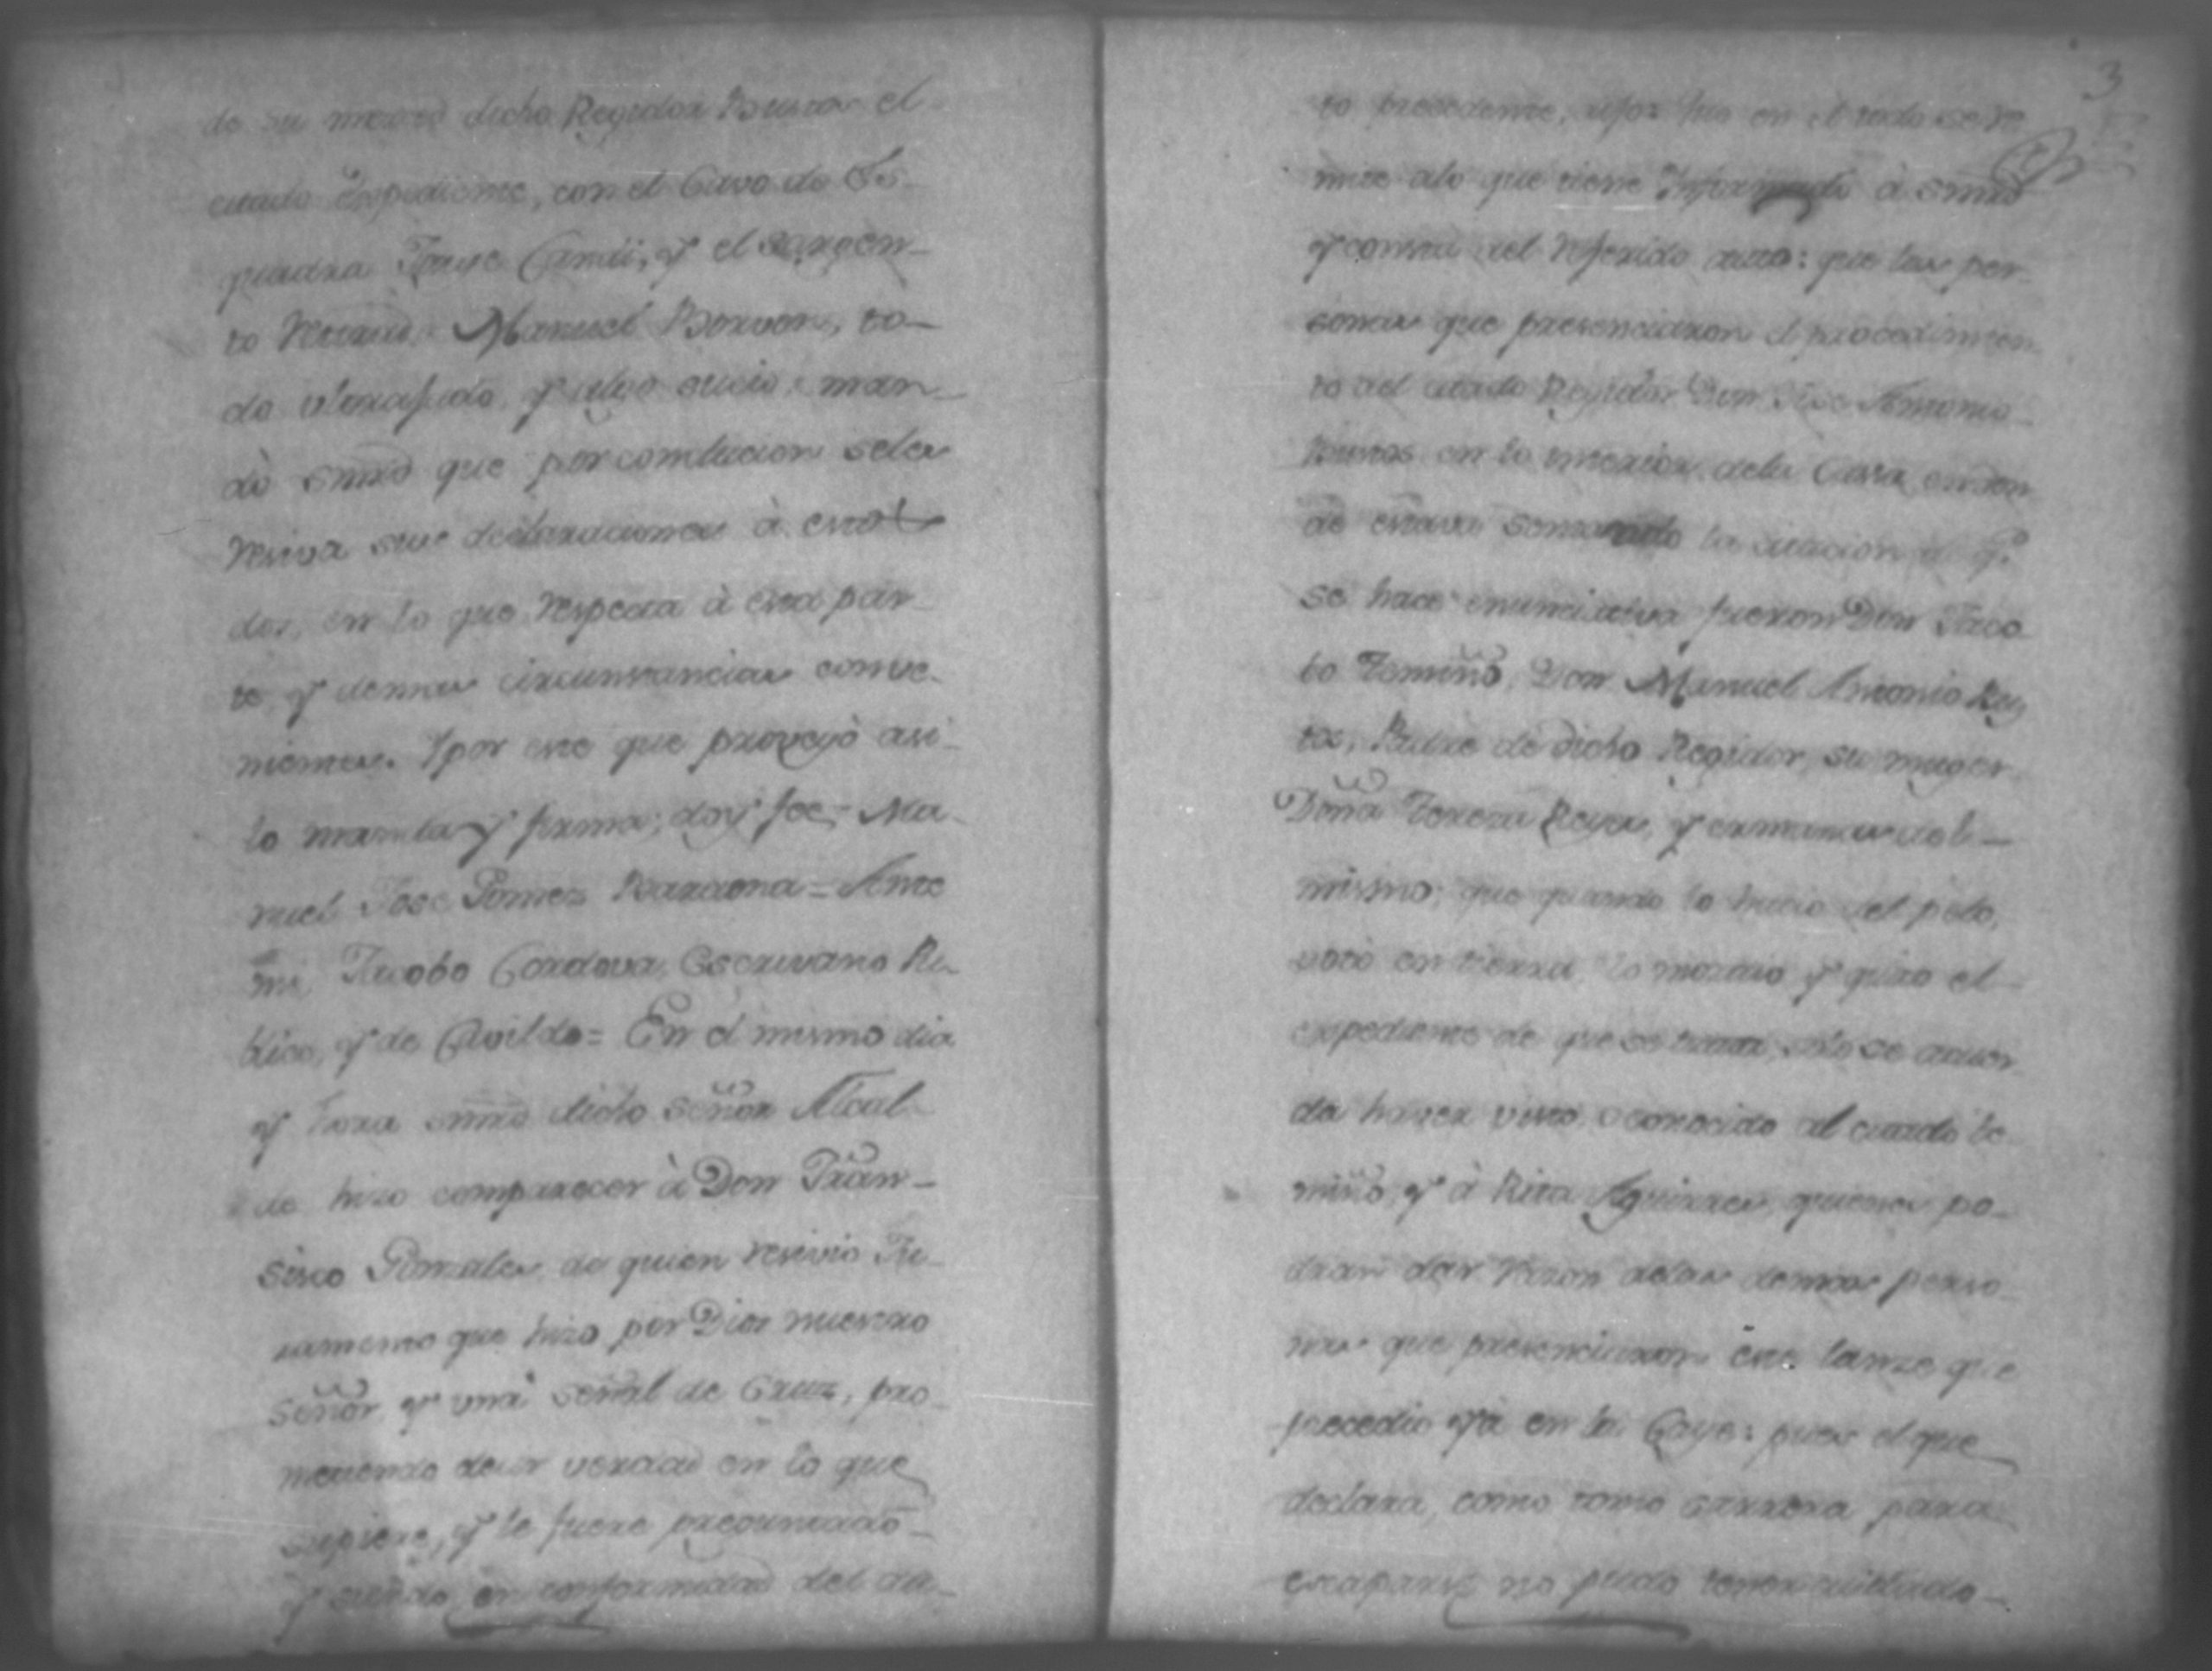 de su merced dicho Regidor Bustos el
citado Expediente, con el Cavo de Es-
quadra Jauje Cantii, y el sargen-
to Retirado Manuel Borvon, to-
do ulexafado, y algo sucio: man-
dó smrd que por continuacion seles
Resiva sus declaraciones à estos
dos, en lo que Respecta à esta par-
te y demas circunstancias conve-
nientes. Ypor este que proveyó asi
lo manda y firma, doy fee = Ma-
nuel Jose Gomez Barciona = Ante
mi Jacobo Cordova, Escrivano Pu-
blico, y de Cavildo = En el mismo dia
y hora smrd dicho señor Alcal-
de hizo comparecer à Don Fran-
sisco Gonzales de quien resivio Ju-
ramento que hizo por Dios nuestro
señor y una señal de Cruz, pro-
metiendo decir verdad en lo que
supiere, y le fuere preguntado
y siendo en conformidad del au-
3
to precedente, dijo: que en el todo se re-
mite alo que tiene Informado à smrd
y consta del Referido auto: que las per-
sonas que presenciaron el procedimien-
to del citado Regidor Don Jose Antonio
Bustos en lo interior dela Casa en don-
de estava sentando la citacion de q.e
se hace enunciativa fueron Don Jaco-
bo Temiño, Don Manuel Antonio Bus-
tos, Padre de dicho Regidor, su muger
Doña Tereza Reyes, y ermanas del
mismo; que quando lo hucio del pelo,
votó en tierra, lo mordio y quito el
expediente de que se trata, solo se acuer-
da haver visto o conocido al citado Te-
miño, y à Rita Aguirres, quienes po-
dran dar razon delas demas perso-
nas que presenciaron este lanze que
precedio yá en la Caye: pues el que
declara, como tomó carrera para
escaparse no pudo tener cuidado